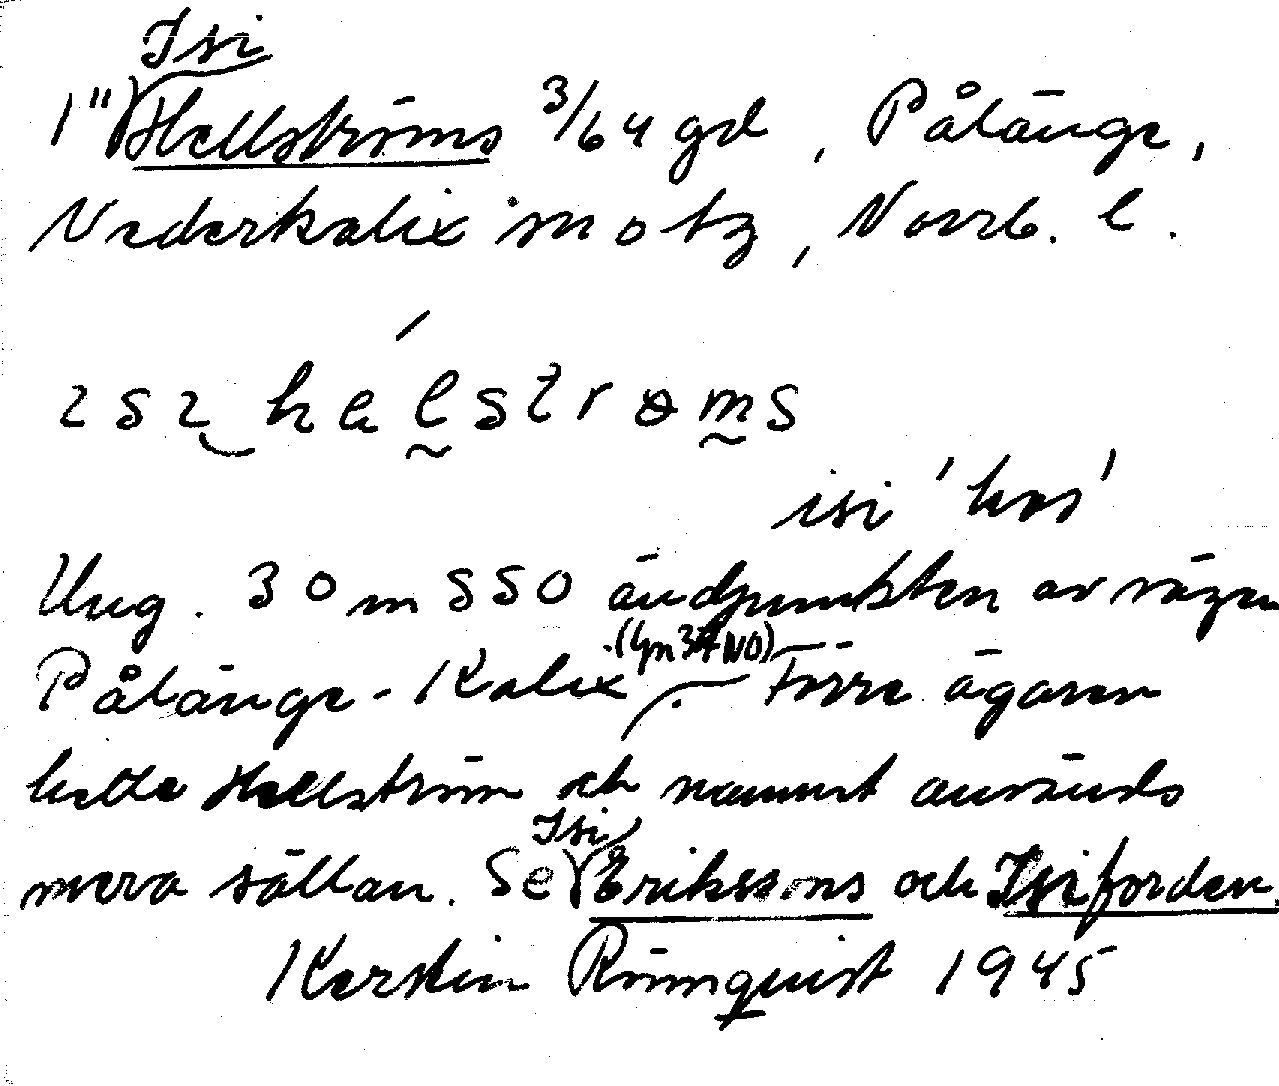 Isi
1") Hellströms 3/64 gd, Pålänge,
Nederkalix
, Norrb. l.
ısı‿hæ´l̰strɵm̰s
isi 'hos'
Ung. 30 m SSO ändpunkten av vägen
(4m 37 NO)
Pålänge - Kalix. Förre ägaren
hette Hellström och namnet användes
Isi
mera sällan. Se Erikssons och Isiforden.
Kerstin Rönnquist 1945